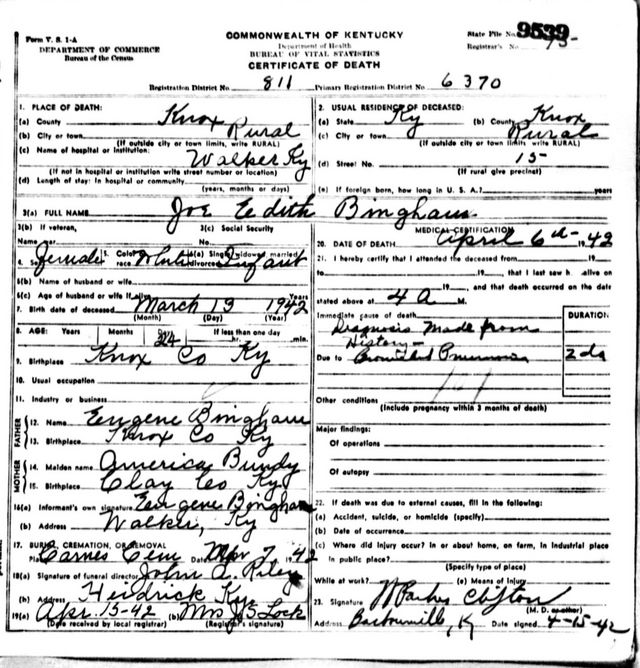 Form V. S. 1-A
DEPARTMENT OF COMMERCE
Bureau of the Census
COMMONWEALTH OF KENTUCKY
Department of Health
BUREAU OF VITAL STATISTICS
CERTIFICATE OF DEATH
State File No. 9539
Registrar's No. 75
Registration District No. 811 Primary Registration District No. 6370
1. PLACE OF DEATH:
(a) County Knox
(b) City or town Rural
(If outside city or town limits, write RURAL)
(c) Name of hospital or institution:
Walker Ky
(If not in hospital or institution write street number or location)
(d) Length of stay: In hospital or community
(years, months or days)
2. USUAL RESIDENCE OF DECEASED:
(a) State Ky (b) County Knox
(c) City or town Rural
(If outside city or town limits, write RURAL)
(d) Street No. 15
(If rural give precinct)
(e) If foreign born, how long in U. S. A.? years
3(a) FULL NAME Joe Edith Bingham
3(b) If veteran, 3(c) Social Security
Name war No.
4. Sex Female 5. Color or race White 6(a) Single, widowed, married, divorced Infant
6(b) Name of husband or wife
6(c) Age of husband or wife if alive Years
7. Birth date of deceased March 13 1942
(Month) (Day) (Year)
8. AGE: Years Months Days If less than one day
24 hr. min.
9. Birthplace Knox Co Ky
10. Usual occupation
11. Industry or business
FATHER
12. Name Eugene Bingham
13. Birthplace Knox Co Ky
MOTHER
14. Maiden name America Bundy
15. Birthplace Clay Co Ky
16(a) Informant's own signature Eugene Bingham
(b) Address Walker, Ky
17. BURIAL, CREMATION, OR REMOVAL
Place Carnes Cem Date Apr 7, 1942
18(a) Signature of funeral director John A. Riley
(b) Address Heidrick Ky
19(a) Apr. 15-42 (b) Mrs J B Lock
(Date received by local registrar) (Registrar's signature)
MEDICAL CERTIFICATION
20. DATE OF DEATH April 6th 1942
21. I hereby certify that I attended the deceased from
, 19 , to , 19 , that I last saw h alive on
, 19 , and that death occurred on the date
stated above at 4 A M.
Immediate cause of death DURATION
Diagnosis made from
History-
Due to Pneumonia 2 da
Other conditions
(Include pregnancy within 3 months of death)
Major findings:
Of operations
Of autopsy
22. If death was due to external causes, fill in the following:
(a) Accident, suicide, or homicide (specify)
(b) Date of occurrence
(c) Where did injury occur? In or about home, on farm, in industrial place
In public place?
(Specify type of place)
While at work? (e) Means of injury
23. Signature Parker Clifton
(M. D. or other)
Address Barbourville, Ky Date signed 4-15-42